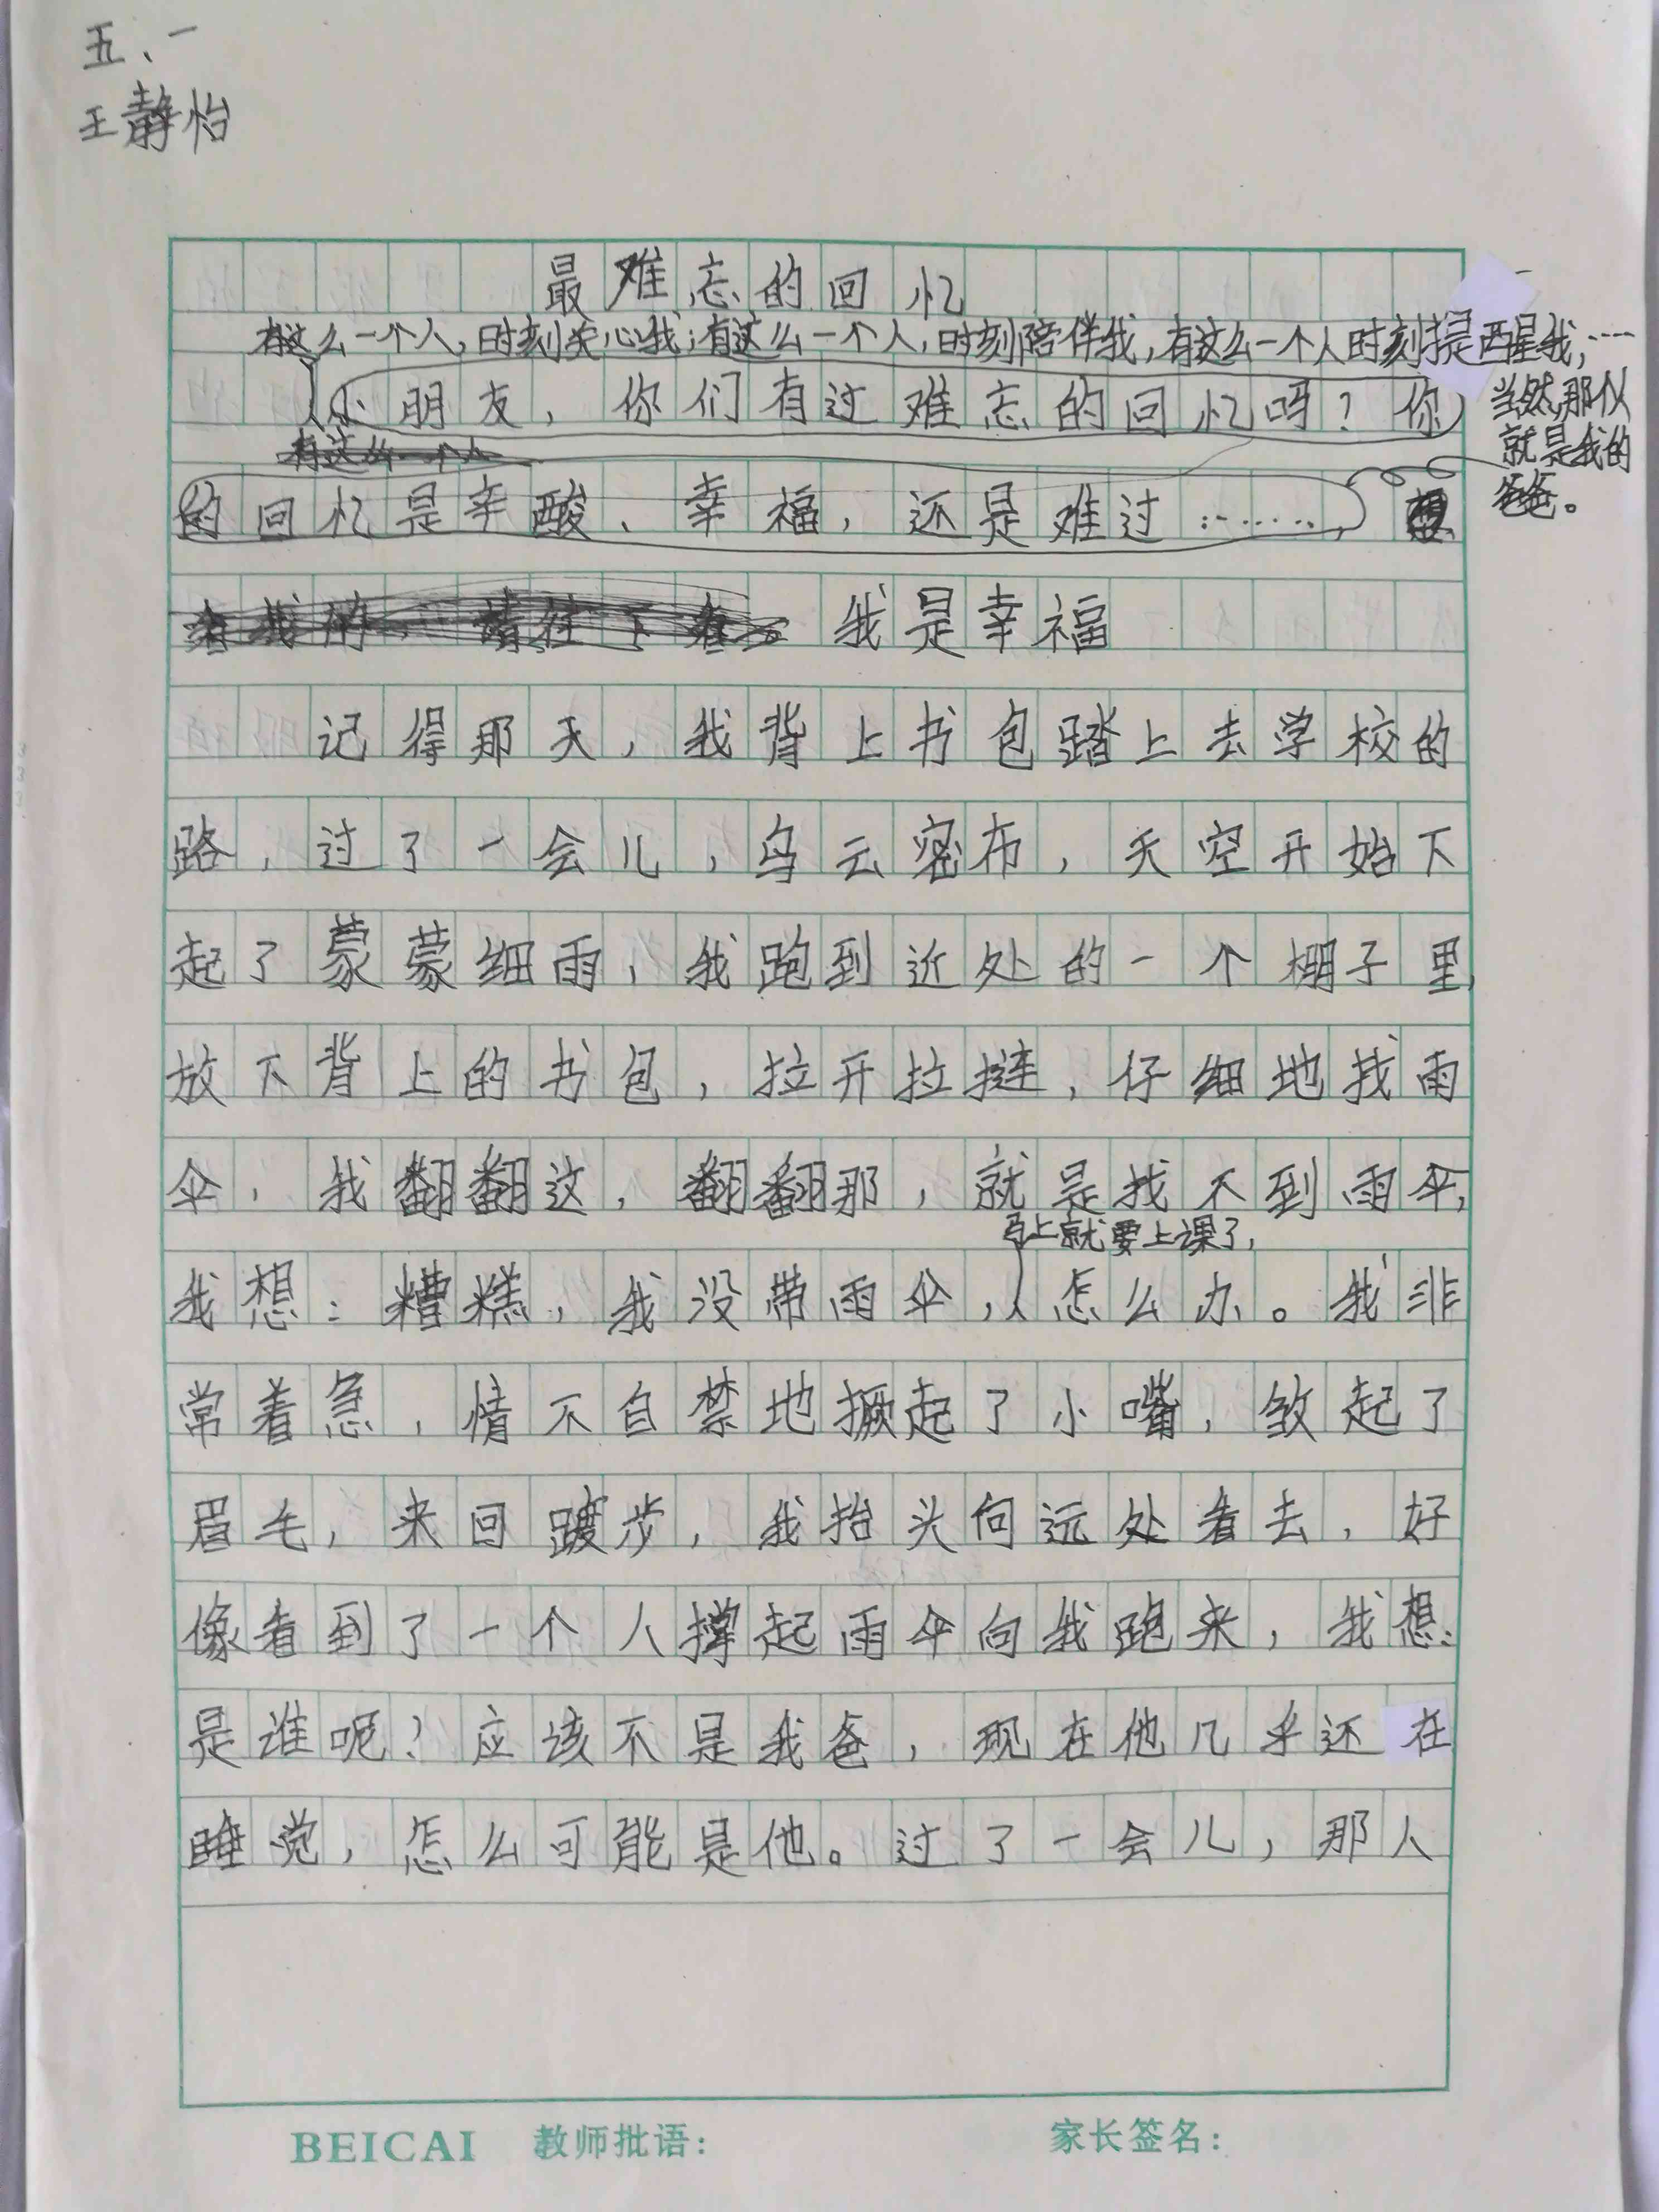 五、一
王静怡
最难忘的回忆
有这么一个人，时刻关心我；有这么一个人，时刻陪伴我，有这么一个人时刻提醒我，……
当然，那仪
就是我的
爸爸。
小朋友，你们有过难忘的回忆吗？你
有这么一个人
的回忆是辛酸、幸福，还是难过……，
我是幸福
记得那天，我背上书包踏上去学校的
路，过了一会儿，乌云密布，天空开始下
起了蒙蒙细雨，我跑到近处的一个棚子里，
放下背上的书包，拉开拉挞，仔细地找雨
伞，我翻翻这，翻翻那，就是找不到雨伞，
马上就要上课了，
我想：糟糕，我没带雨伞，怎么办。我非
常着急，情不自禁地撅起了小嘴，皱起了
眉毛，来回踱步，我抬头向远处看去，好
像看到了一个人撑起雨伞向我跑来，我想：
是谁呢？应该不是我爸，现在他几乎还在
睡觉，怎么可能是他。过了一会儿，那人
BEICAI 教师批语： 家长签名：